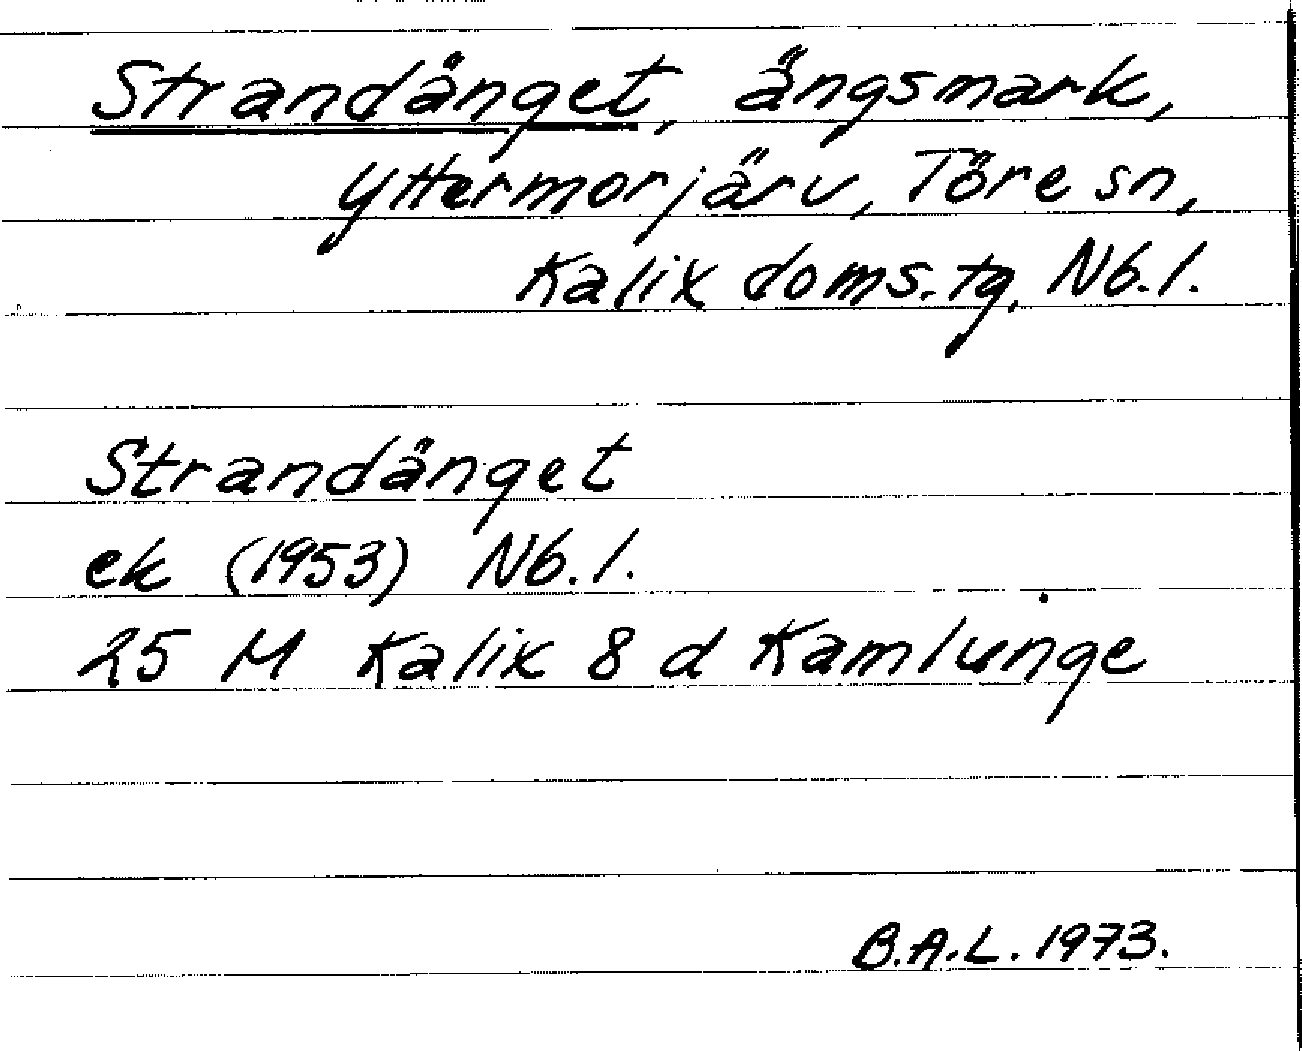 Strandänget, ängsmark,
Yttermorjärv, Töre sn,
Kalix doms.tg. Nb.l.
Strandänget
ek (1953) Nb.l.
25 M Kalix 8 d Kamlunge
B.A.L. 1973.